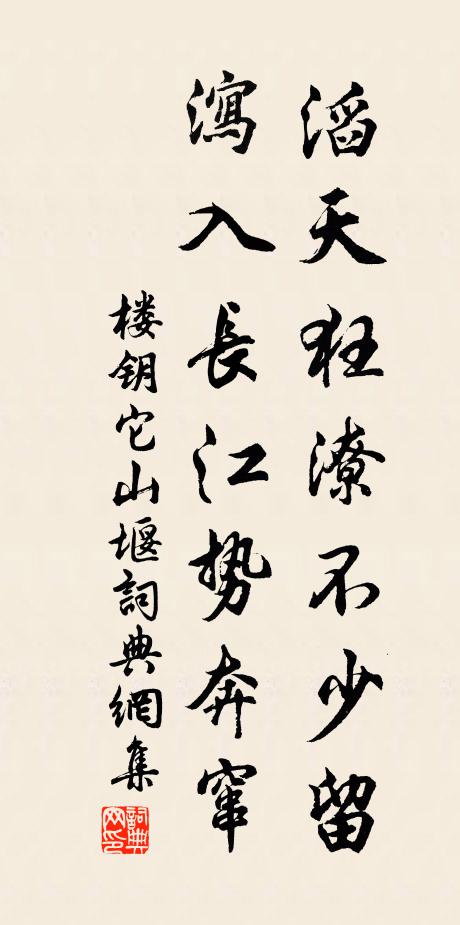 滔天狂潦不少留
瀉入長江势奔窜
楼钥它山堰詞典網集
詞典網印